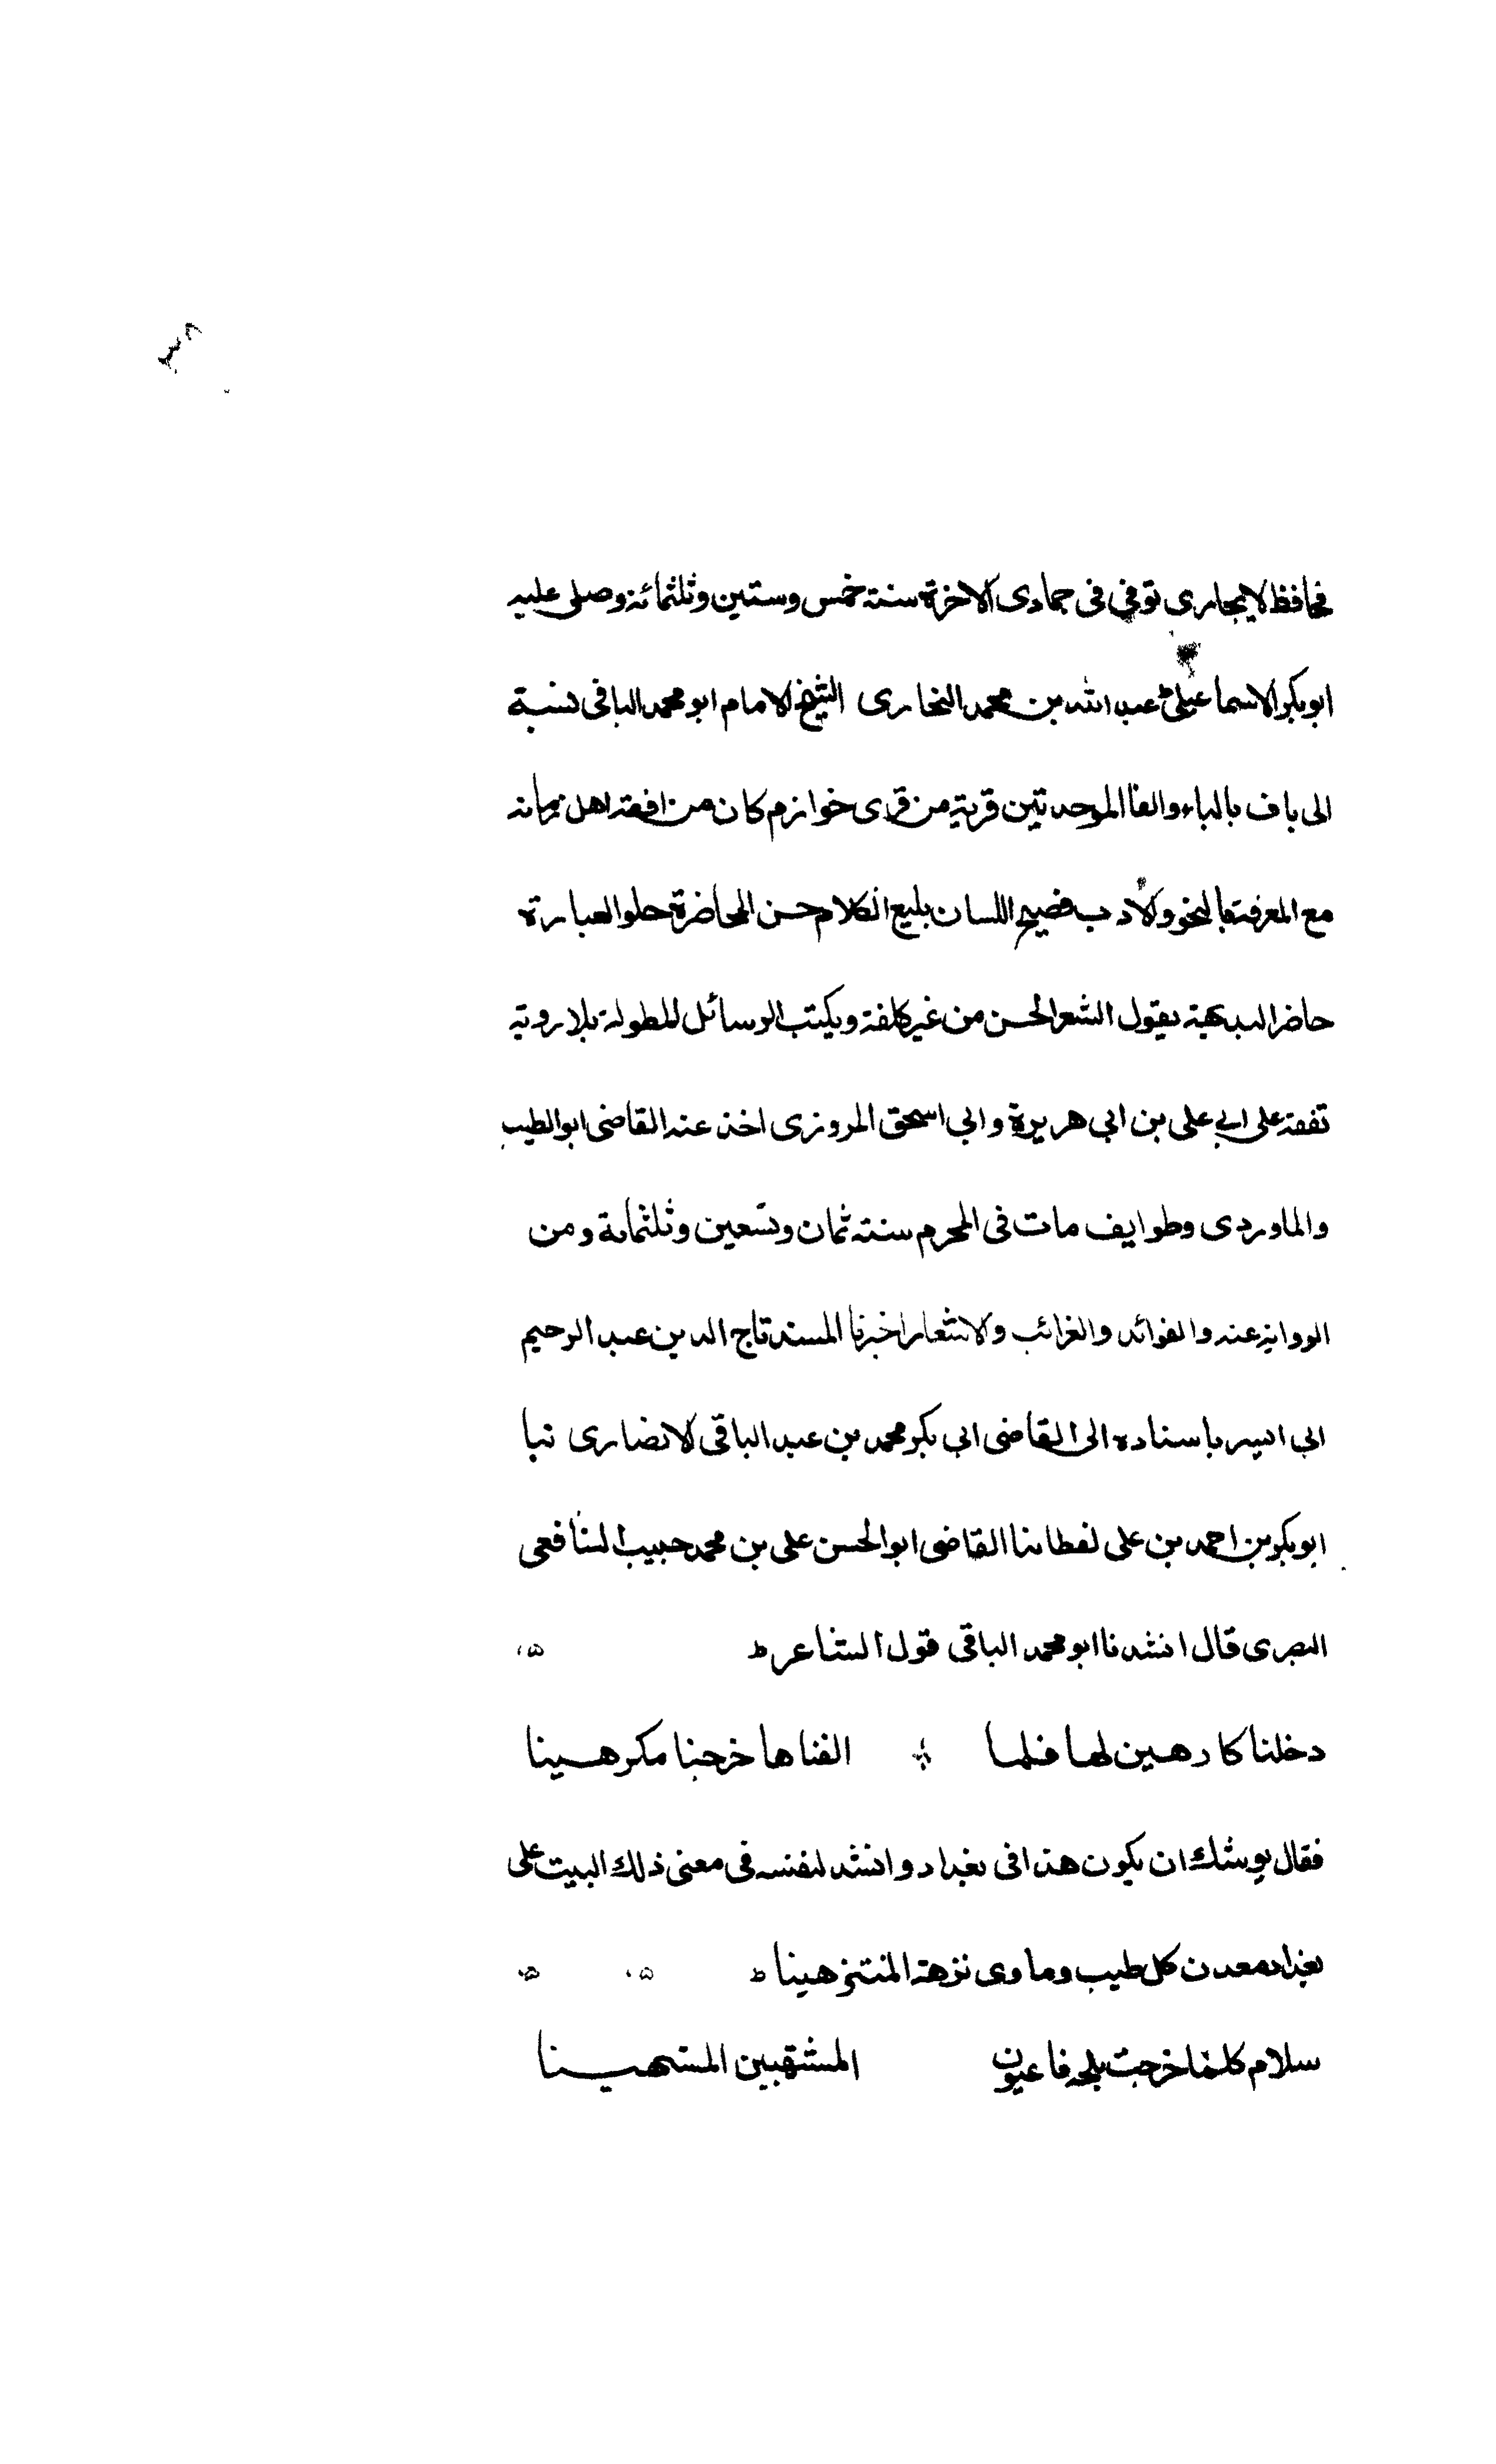 فحافظ لايجارى توفي في جمادى الاخرة سنة خمس وستين وثلثمائة وصلى عليه
ابوبكر الاسماعيلى ط عبد الله بن محمد البخارى الشيخ الامام ابو محمد الباقى نسبة
الى باف بالباء والفا الموحدتين قرية من قرى خوارزم كان من افقه اهل زمانه
مع المعرفة بالنحو والادب فصيح اللسان بليغ الكلام حسن المحاضرة حلو العبارة
حاضر البديهة يقول الشعر الحسن من غير كلفة ويكتب الرسائل المطولة بلا روية
تفقه على ابي على بن ابي هريرة وابي اسحق المروزى اخذ عنه القاضى ابو الطيب
والماوردى وطوايف مات فى المحرم سنة ثمان وتسعين وثلثماية ومن
الرواية عنه والفوائد والغرائب والاشعار اخبرنا المسند تاج الدين عبد الرحيم
ابي اليسر باسناده الى القاضى ابي بكر محمد بن عبد الباقى الانصارى نبا
ابوبكر بن احمد بن على لفظا نبا القاضى ابو الحسن على بن محمد حبيب الشافعى
البصرى قال انشدنا ابو محمد الباقى قول الشاعر ط
دخلنا كارهين لها فلما الفناها خرجنا مكرهينا
فقال يوشك ان يكون هذا فى بغداد وانشد لنفسه فى معنى ذلك البيت على
بغداد معدن كل طيب وماوى نزهة المتنزهينا ط
سلام كلما خرجت عيون المشتهين المشتهينا